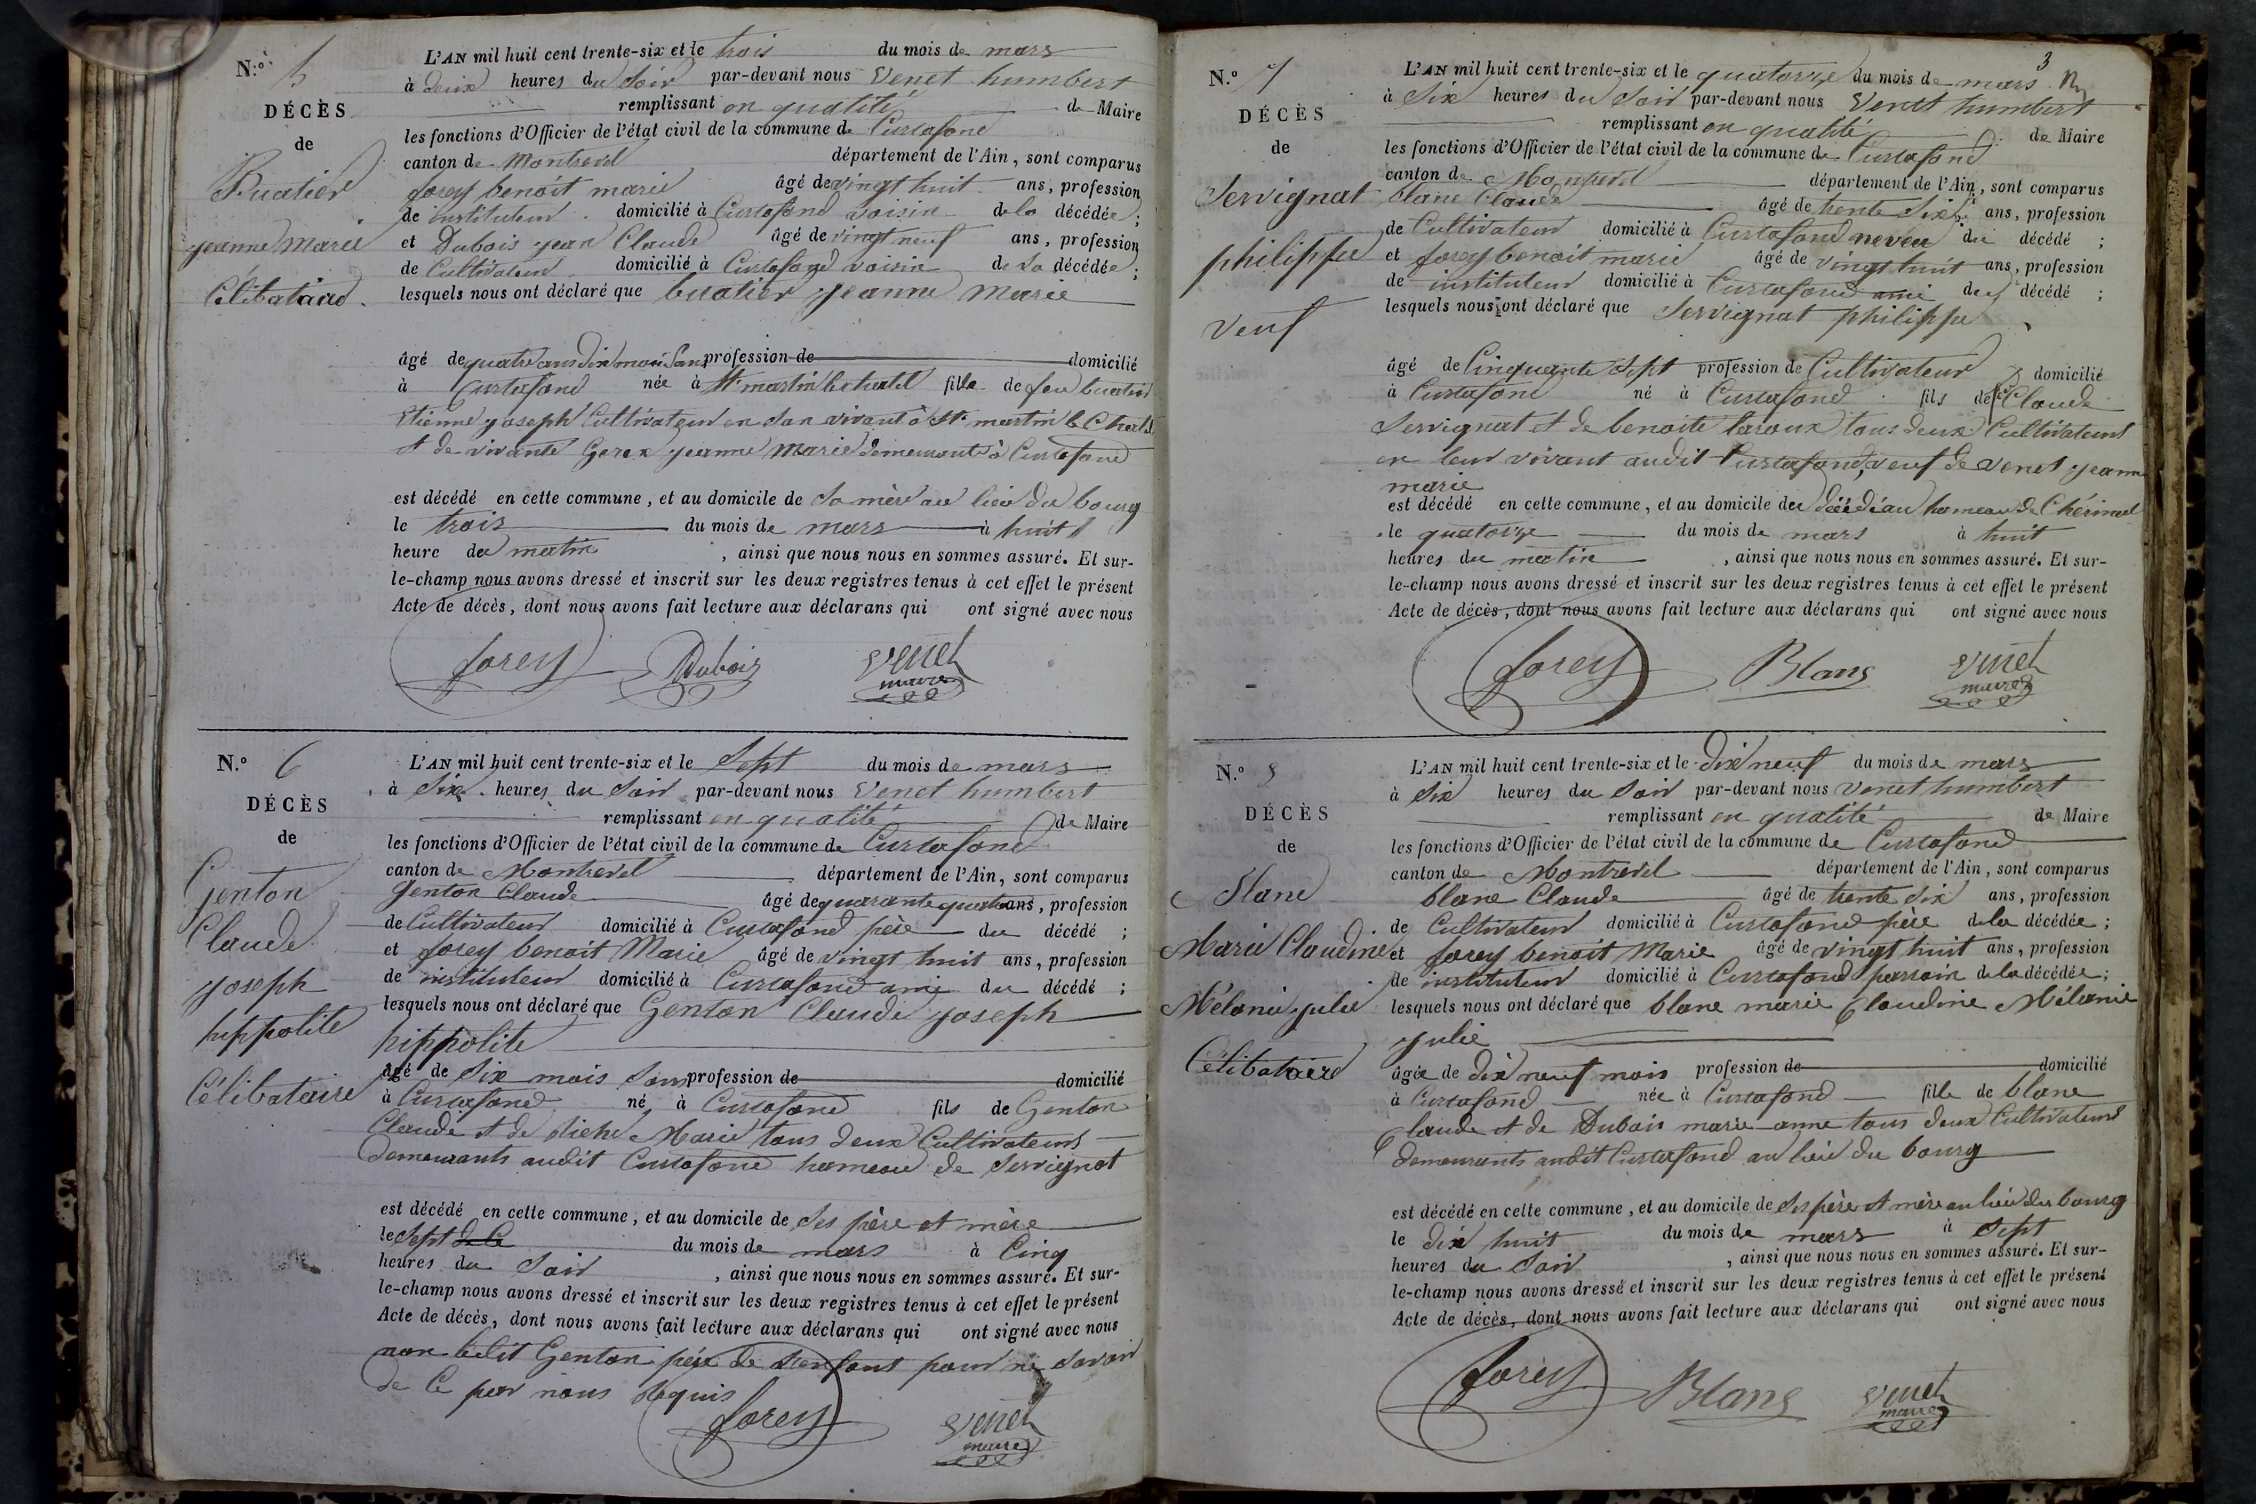 N.o 5
DÉCÈS
de
Buatier
jeanne Marie
Célibataire.
L'AN mil huit cent trente-six et le trois du mois de mars
à deux heures du Soir par-devant nous Venet humbert
remplissant en qualité de Maire
les fonctions d'Officier de l'état civil de la commune de Curtafond
canton de Montrevel département de l'Ain, sont comparus
forey benoit marie âgé de vingt huit ans, profession
de instituteur domicilié à Curtafond voisin de la décédée;
et Dubois jean Claude âgé de vingt neuf ans, profession
de Cultivateur domicilié à Curtafond voisin de la décédée;
lesquels nous ont déclaré que buatier jeanne Marie
âgé de quatre ans dix mois Sans profession de domicilié
à Curtafond née à St martin le chatel fille de feu buatier
Etienne joseph Cultivateur en son vivant à St martin le Chatel
et de vivante jeanne Marie demeurante à Curtafond
est décédé en cette commune, et au domicile de Sa mère au lieu du bourg
le trois du mois de mars à huit
heure du matin, ainsi que nous nous en sommes assuré. Et sur-
le-champ nous avons dressé et inscrit sur les deux registres tenus à cet effet le présent
Acte de décès, dont nous avons fait lecture aux déclarans qui ont signé avec nous
forey Dubois Venet
maire
N.o 6
DÉCÈS
de
Genton
Claude
joseph
hippolite
Célibataire
L'AN mil huit cent trente-six et le Sept du mois de mars
à Six heures du Soir par-devant nous Venet humbert
remplissant en qualité de Maire
les fonctions d'Officier de l'état civil de la commune de Curtafond
canton de Montrevel département de l'Ain, sont comparus
Genton Claude âgé de quarante quatre ans, profession
de Cultivateur domicilié à Curtafond père du décédé;
et forey benoit Marie âgé de vingt huit ans, profession
de instituteur domicilié à Curtafond ami du décédé;
lesquels nous ont déclaré que Genton Claude joseph
hippolite
âgé de Six mois Sans profession de domicilié
à Curtafond né à Curtafond fils de Genton
Claude et de Marie tous deux Cultivateurs
demeurants audit Curtafond hameau de Servignat
est décédé en cette commune, et au domicile de Ses père et mère
le Sept du mois de mars à Cinq
heures du Soir, ainsi que nous nous en sommes assuré. Et sur-
le-champ nous avons dressé et inscrit sur les deux registres tenus à cet effet le présent
Acte de décès, dont nous avons fait lecture aux déclarans qui ont signé avec nous
non ledit Genton père de l'enfant pour ne Savoir
de Ce par nous Requis
forey Venet
maire
3
N.o 7
DÉCÈS
de
Servignat
philippe
veuf
L'AN mil huit cent trente-six et le quatorze du mois de mars
à Six heures du Soir par-devant nous Venet humbert
remplissant en qualité de Maire
les fonctions d'Officier de l'état civil de la commune de Curtafond
canton de Montrevel département de l'Ain, sont comparus
blanc Claude âgé de trente Six ans, profession
de Cultivateur domicilié à Curtafond neveu du décédé;
et forey benoit marie âgé de vingt huit ans, profession
de instituteur domicilié à Curtafond ami du décédé;
lesquels nous ont déclaré que Servignat philippe
âgé de Cinquante Sept profession de Cultivateur domicilié
à Curtafond né à Curtafond fils de Claude
Servignat et de benoite tous deux Cultivateurs
en leur vivant audit Curtafond, veuf de venet jeanne
marie
est décédé en cette commune, et au domicile du décédé au hameau de
le quatorze du mois de mars à huit
heures du matin, ainsi que nous nous en sommes assuré. Et sur-
le-champ nous avons dressé et inscrit sur les deux registres tenus à cet effet le présent
Acte de décès, dont nous avons fait lecture aux déclarans qui ont signé avec nous
forey Blanc Venet
maire
N.o 8
DÉCÈS
de
Blanc
Marie Claudine
Mélanie julie
Célibataire
L'AN mil huit cent trente-six et le Dix neuf du mois de mars
à Six heures du Soir par-devant nous Venet humbert
remplissant en qualité de Maire
les fonctions d'Officier de l'état civil de la commune de Curtafond
canton de Montrevel département de l'Ain, sont comparus
blanc Claude âgé de trente Six ans, profession
de Cultivateur domicilié à Curtafond père de la décédée;
et forey benoit Marie âgé de vingt huit ans, profession
de instituteur domicilié à Curtafond parrain de la décédée;
lesquels nous ont déclaré que blanc marie Claudine Mélanie
julie
âgée de dix neuf mois profession de domicilié
à Curtafond née à Curtafond fille de blanc
Claude et de Dubois marie-anne tous deux Cultivateurs
demeurants audit Curtafond au lieu du bourg
est décédé en cette commune, et au domicile de Ses père et mère au lieu du bourg
le dix huit du mois de mars à Sept
heures du Soir, ainsi que nous nous en sommes assuré. Et sur-
le-champ nous avons dressé et inscrit sur les deux registres tenus à cet effet le présent
Acte de décès, dont nous avons fait lecture aux déclarans qui ont signé avec nous
forey Blanc Venet
maire